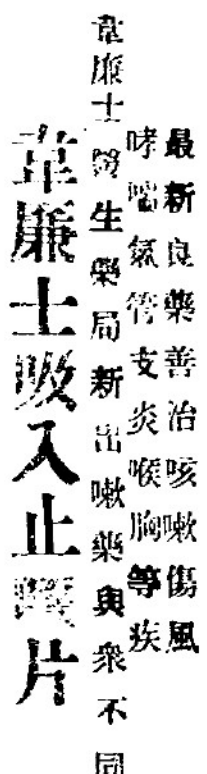 最新良藥善治咳嗽傷風
哮喘氣管支炎喉胸等疾
韋廉士醫生藥局新出嗽藥與衆不同
韋廉士吸入止嗽片